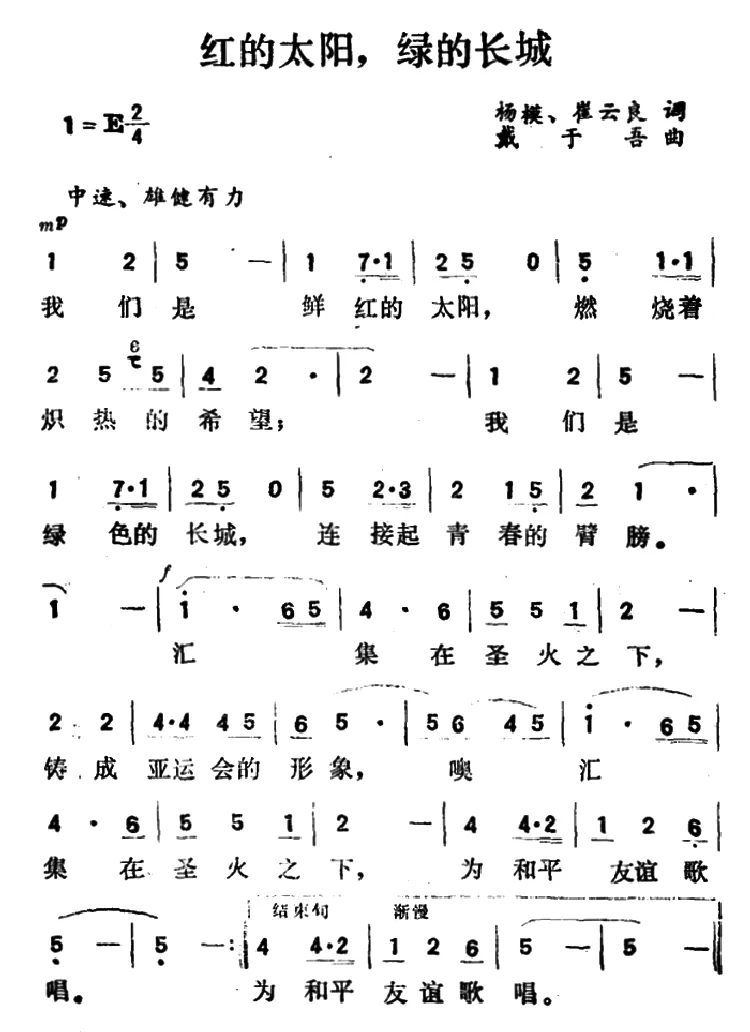 红的太阳，绿的长城
1=E 2/4
杨模、崔云良 词
戴于吾 曲
中速、雄健有力
mp
1 2 | 5 — | 1 7·1 | 2 5 0 | 5 1·1 |
我们是 鲜红的太阳，燃烧着
6
2 5 5 | 4 2 · | 2 — | 1 2 | 5 — |
炽热的希望； 我们是
1 7·1 | 2 5 0 | 5 2·3 | 2 1 5 | 2 1 · |
绿色的长城，连接起青春的臂膀。
f
1 — | 1 · 6 5 | 4 · 6 | 5 5 1 | 2 — |
汇集在圣火之下，
2 2 | 4·4 4 5 | 6 5 · | 5 6 4 5 | 1 · 6 5 |
铸成亚运会的形象，噢汇
4 · 6 | 5 5 1 | 2 — | 4 4·2 | 1 2 6 |
集在圣火之下，为和平友谊歌
结束句 渐慢
5 — | 5 — :| 4 4·2 | 1 2 6 | 5 — | 5 — |
唱。 为和平友谊歌唱。